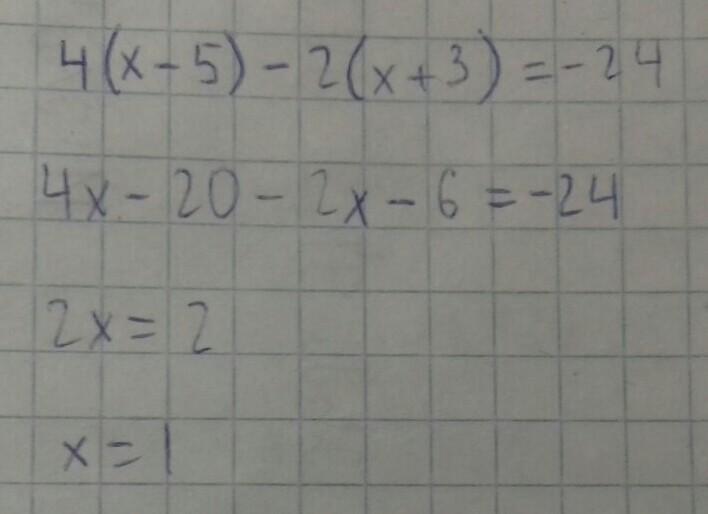 4(x-5)-2(x+3)=-24
4x-20-2x-6=-24
2x=2
x=1